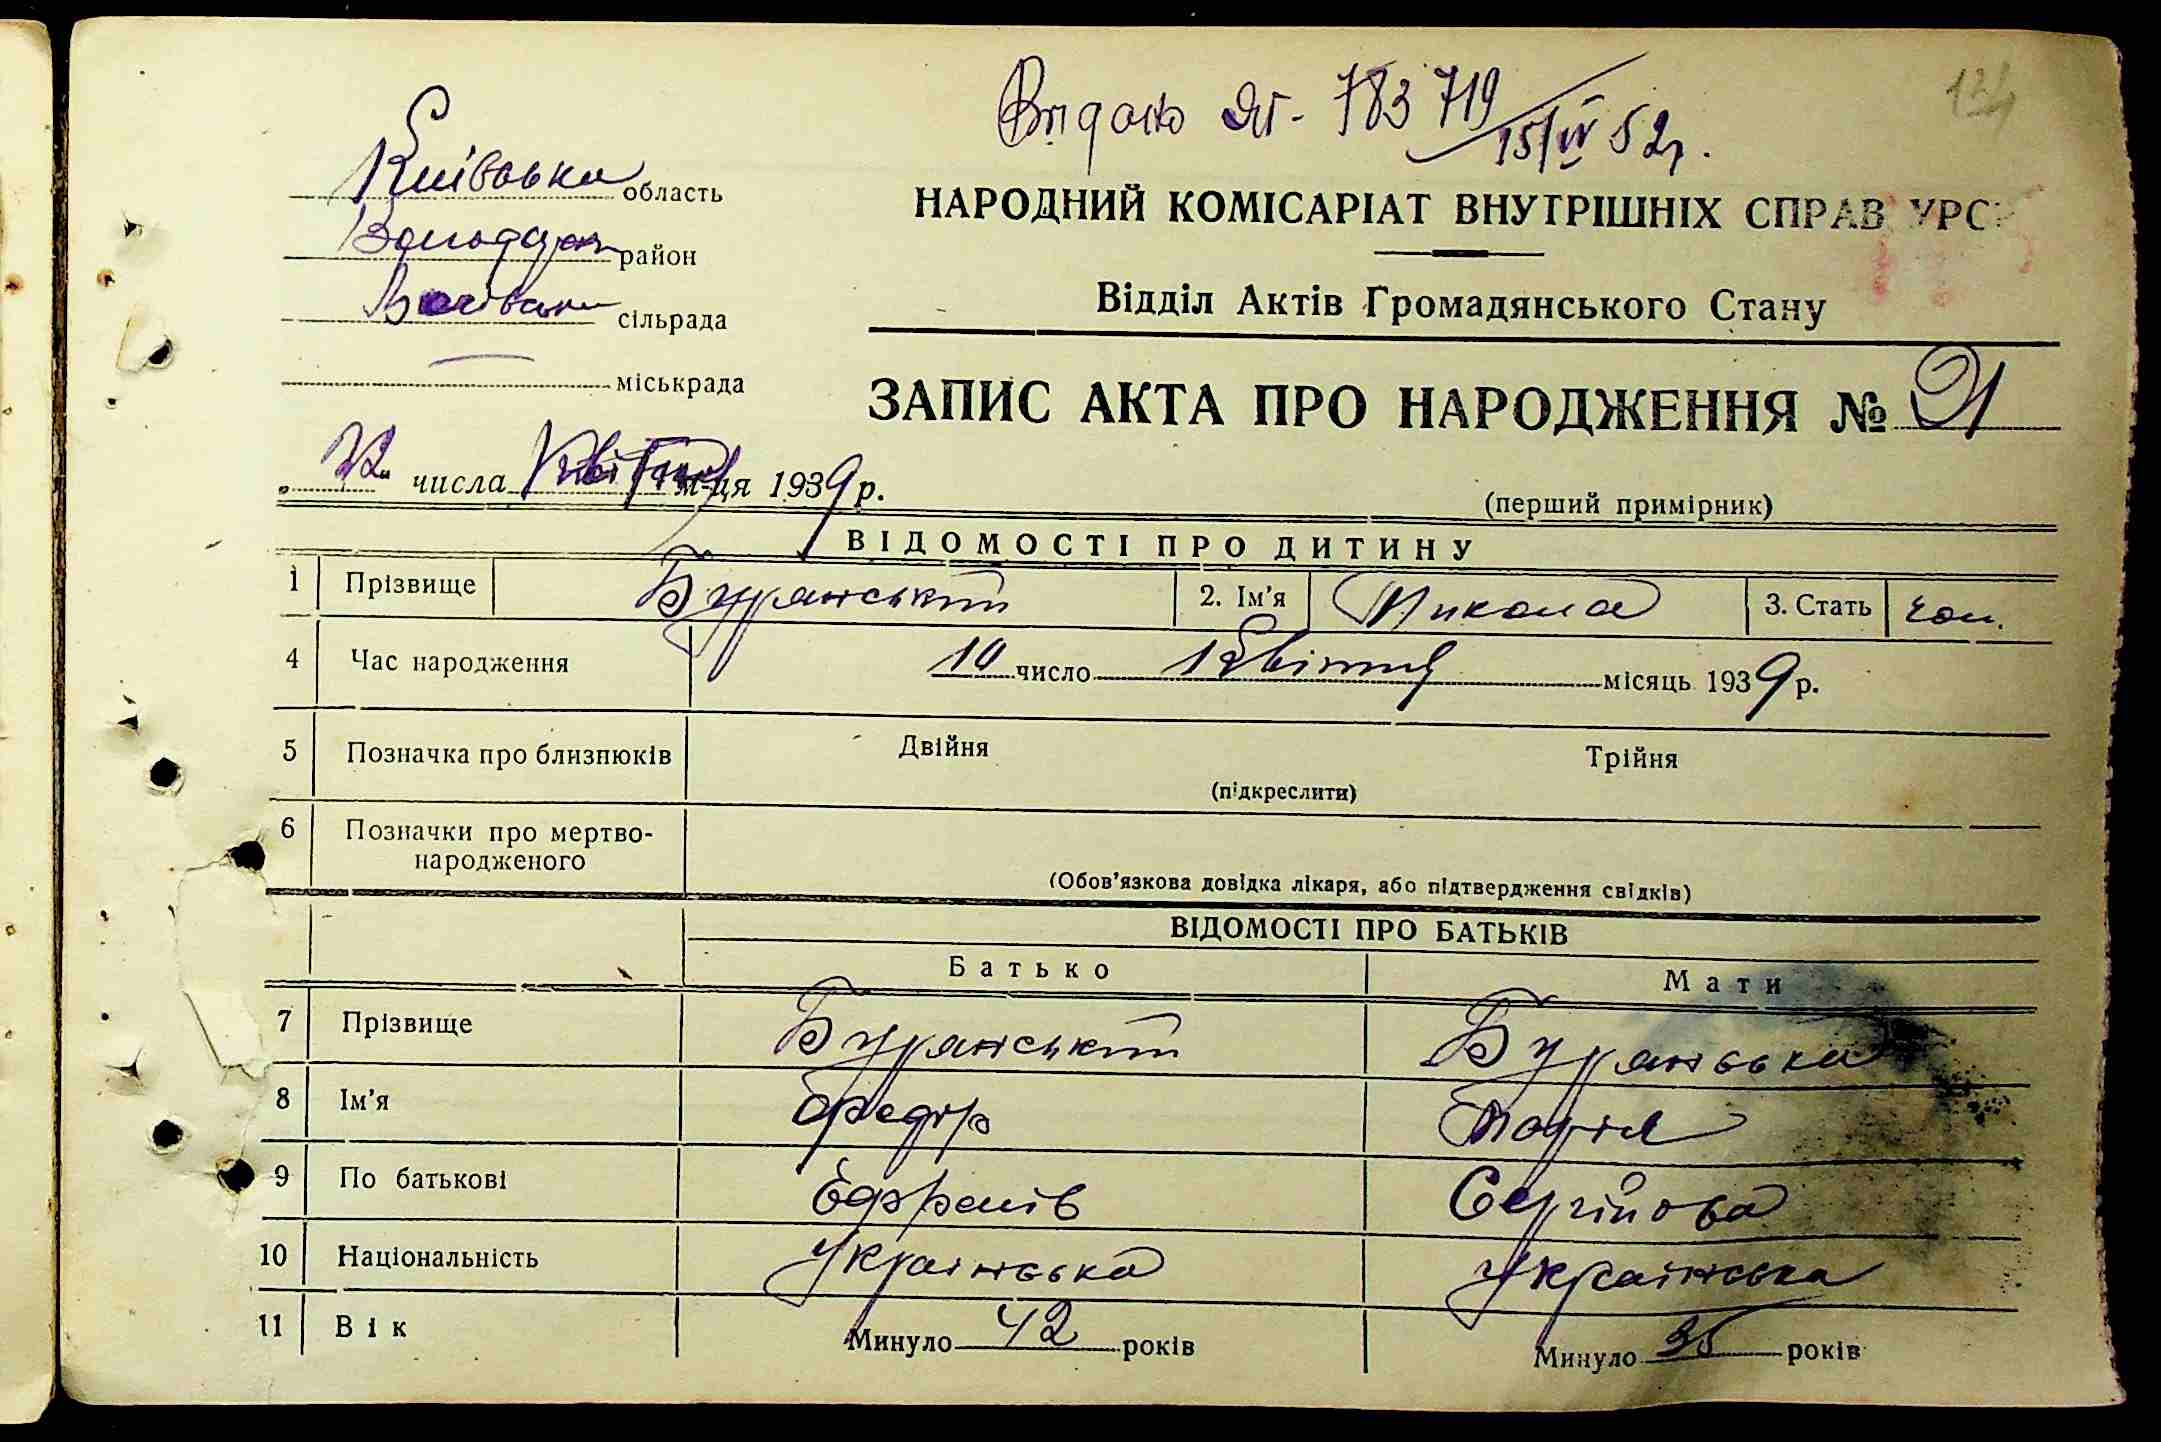 Видано ЯГ- 783719 15/IV 52 р.
124
Київська область
Володарськ район
сільрада
міськрада
НАРОДНИЙ КОМІСАРІАТ ВНУТРІШНІХ СПРАВ УРСР
Відділ Актів Громадянського Стану
ЗАПИС АКТА ПРО НАРОДЖЕННЯ № 21
„22“ числа Квітня м-ця 1939 р.
(перший примірник)
ВІДОМОСТІ ПРО ДИТИНУ
1 Прізвище Бурянський 2. Ім’я Микола 3. Стать чол.
4 Час народження 10 число Квітня місяць 1939 р.
5 Позначка про близнюків Двійня Трійня
(підкреслити)
6 Позначки про мертво-
народженого
(Обов’язкова довідка лікаря, або підтвердження свідків)
ВІДОМОСТІ ПРО БАТЬКІВ
Батько Мати
7 Прізвище Бурянський Бурянська
8 Ім’я Федір
9 По батькові Сергійова
10 Національність Українська Українська
11 Вік Минуло 42 років Минуло 35 років